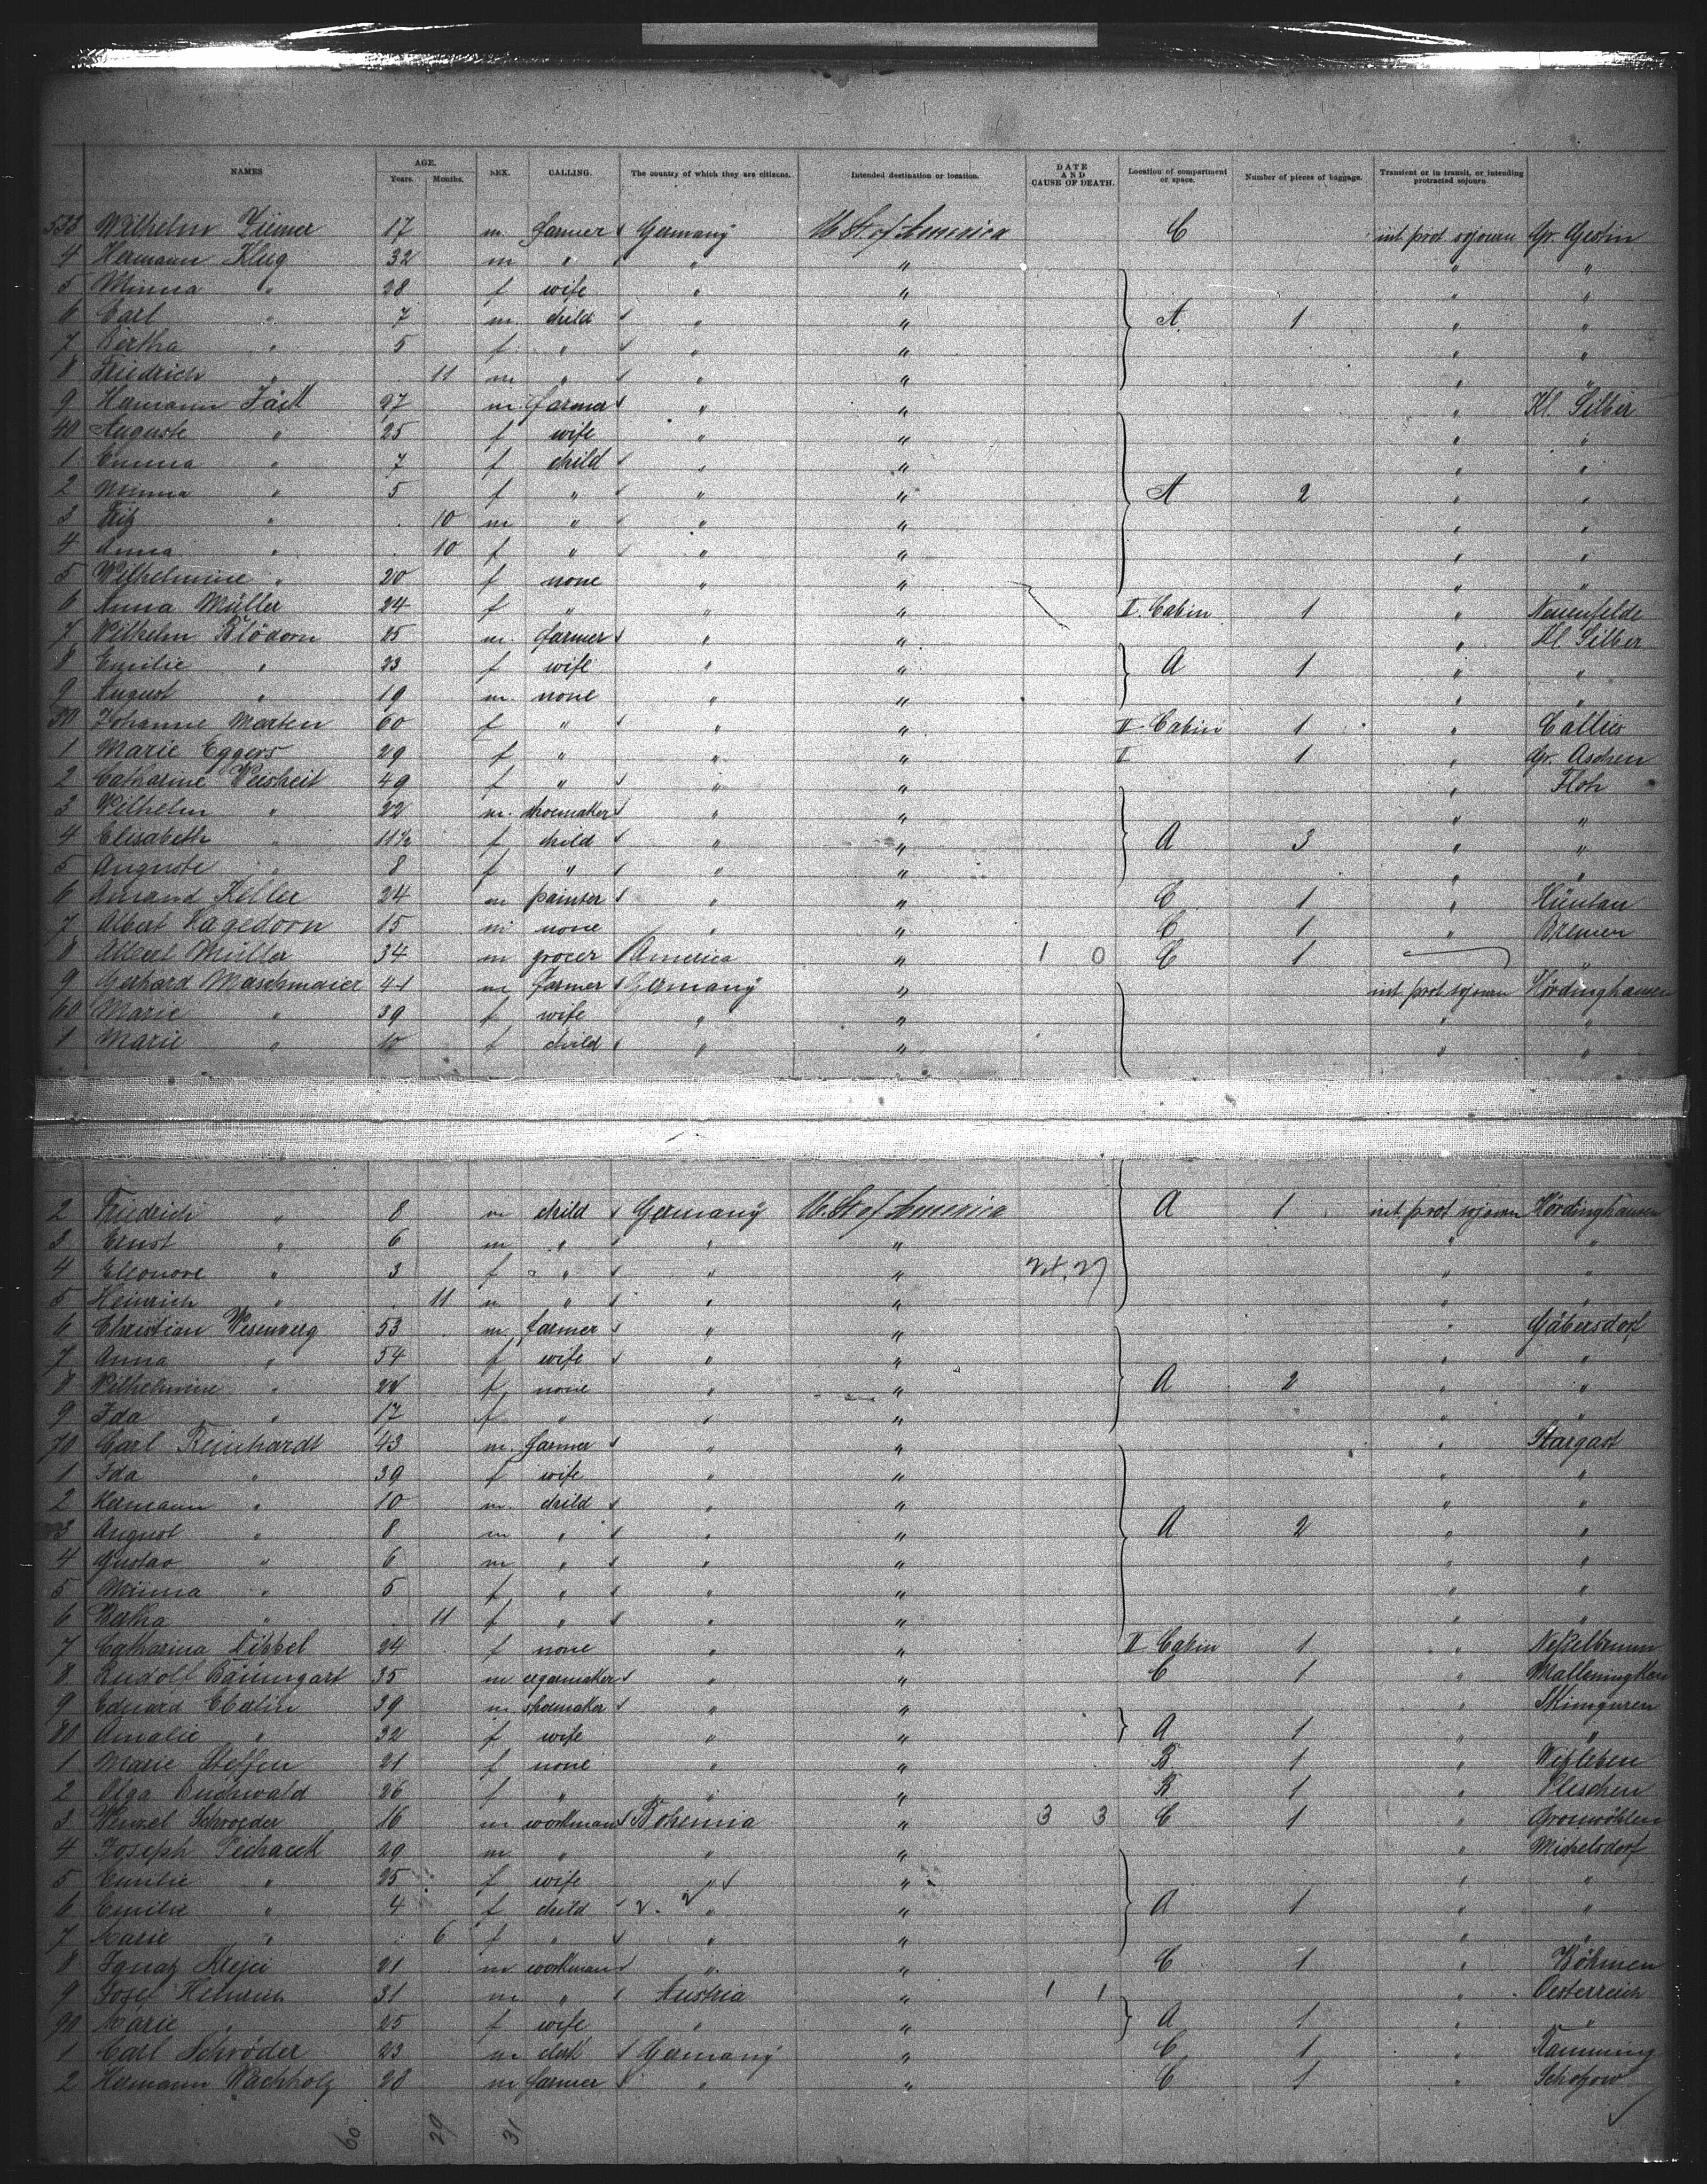 NAMES AGE. Years. Months. SEX. CALLING. The country of which they are citizens. Intended destination or location. DATE AND CAUSE OF DEATH. Location of compartment or space. Number of pieces of baggage. Transient or in transit, or intending protracted sojourn
533 Wilhelm 17 m. farmer Germany U. St. of America C int. prot sojourn Gr. Gestin
4 Hermann Klug 32 m " " " " "
5 Minna " 28 f wife " " " "
6 Carl " 7 m. child " " A. 1 " "
7 Bertha " 5 f. " " " " "
8 Friedrich " 11 m " " " " "
9 Hermann 27 m. farmer " " " Kl. Silber
40 Auguste " 25 f wife " " " "
1 Emma " 7 f child " " " "
2 Minna " 5 f " " " A 2 " "
3 Fritz " 10 m " " " " "
4 Anna " 10 f " " " " "
5 Wilhelmine " 20 f none " " " "
6 Anna Müller 24 f " " " II. Cabin 1 " Neuenfelde
7 Wilhelm Klödorn 25 m. farmer " " " Kl. Silber
8 Emilie " 23 f wife " " A 1 " "
9 August " 19 m. none " " " "
50 Johanne Marten 60 f " " " II Cabin 1 " Callies
1 Marie Eggers 29 f " " " II 1 " Gr. Aschen
2 Catharine Weisheit 49 f " " " " Floh
3 Wilhelm " 22 m. shoemaker " " " "
4 Elisabeth " 11½ f child " " A 3 " "
5 Auguste " 8 f " " " " "
6 Amand Keller 24 m painter " " C 1 " Hüntan
7 Albert Hagedorn 15 m none " " C 1 " Bremen
8 Albert Müller 34 m grocer America " 1 0 C 1 "
9 Gerhard Maschmaier 41 m farmer Germany " int. prot sojourn Hördinghausen
60 Marie " 39 f wife " " " "
1 Marie " 10 f child " " " "
2 Friedrich " 8 m child Germany U. St. of America A 1 int. prot sojourn Hördinghausen
3 Ernst " 6 m " " " " "
4 Eleonore " 3 f " " " " "
5 Heinrich " 11 m " " " " "
6 Christian Wesenberg 53 m farmer " " " Gäbersdorf
7 Anna " 54 f wife " " " "
8 Wilhelmine " 22 f none " " A 2 " "
9 Ida " 17 f " " " " "
70 Carl Reinhardt 43 m. farmer " " " Stargast
1 Ida " 39 f wife " " " "
2 Hermann " 10 m. child " " " "
3 August " 8 m " " " A 2 " "
4 Gustav " 6 m " " " " "
5 Minna " 5 f " " " " "
6 " 11 f " " " " "
7 Catharina Dippel 24 f none " " II Cabin 1 "
8 Rudolf Baumgart 35 m cigarmaker " " C 1 " Malleningken
9 Eduard 39 m shoemaker " " "
80 Amalie " 32 f wife " " A 1 " "
1 Marie Steffen 21 f none " " B 1 "
2 Olga Buchwald 26 f " " " B 1 " Pleschen
3 Wenzel Schroeder 16 m workman Bohemia " 3 3 C 1 "
4 Joseph Pechacek 29 m " " " " Michelsdorf
5 Emilie " 25 f wife " " " "
6 Emilie " 4 f child " " A 1 " "
7 Marie " 6 f " " " " "
8 Ignatz Krejci 21 m workman " " C 1 " Böhmen
9 Josef Heinrich 31 m " Austria " 1 1 " Oesterreich
90 Marie " 25 f wife " " A 1 " "
1 Carl Schröder 23 m clerk Germany " C 1 " Ramming
2 Hermann Wachholz 28 m farmer " " C 1 " Schözow
60 29 31